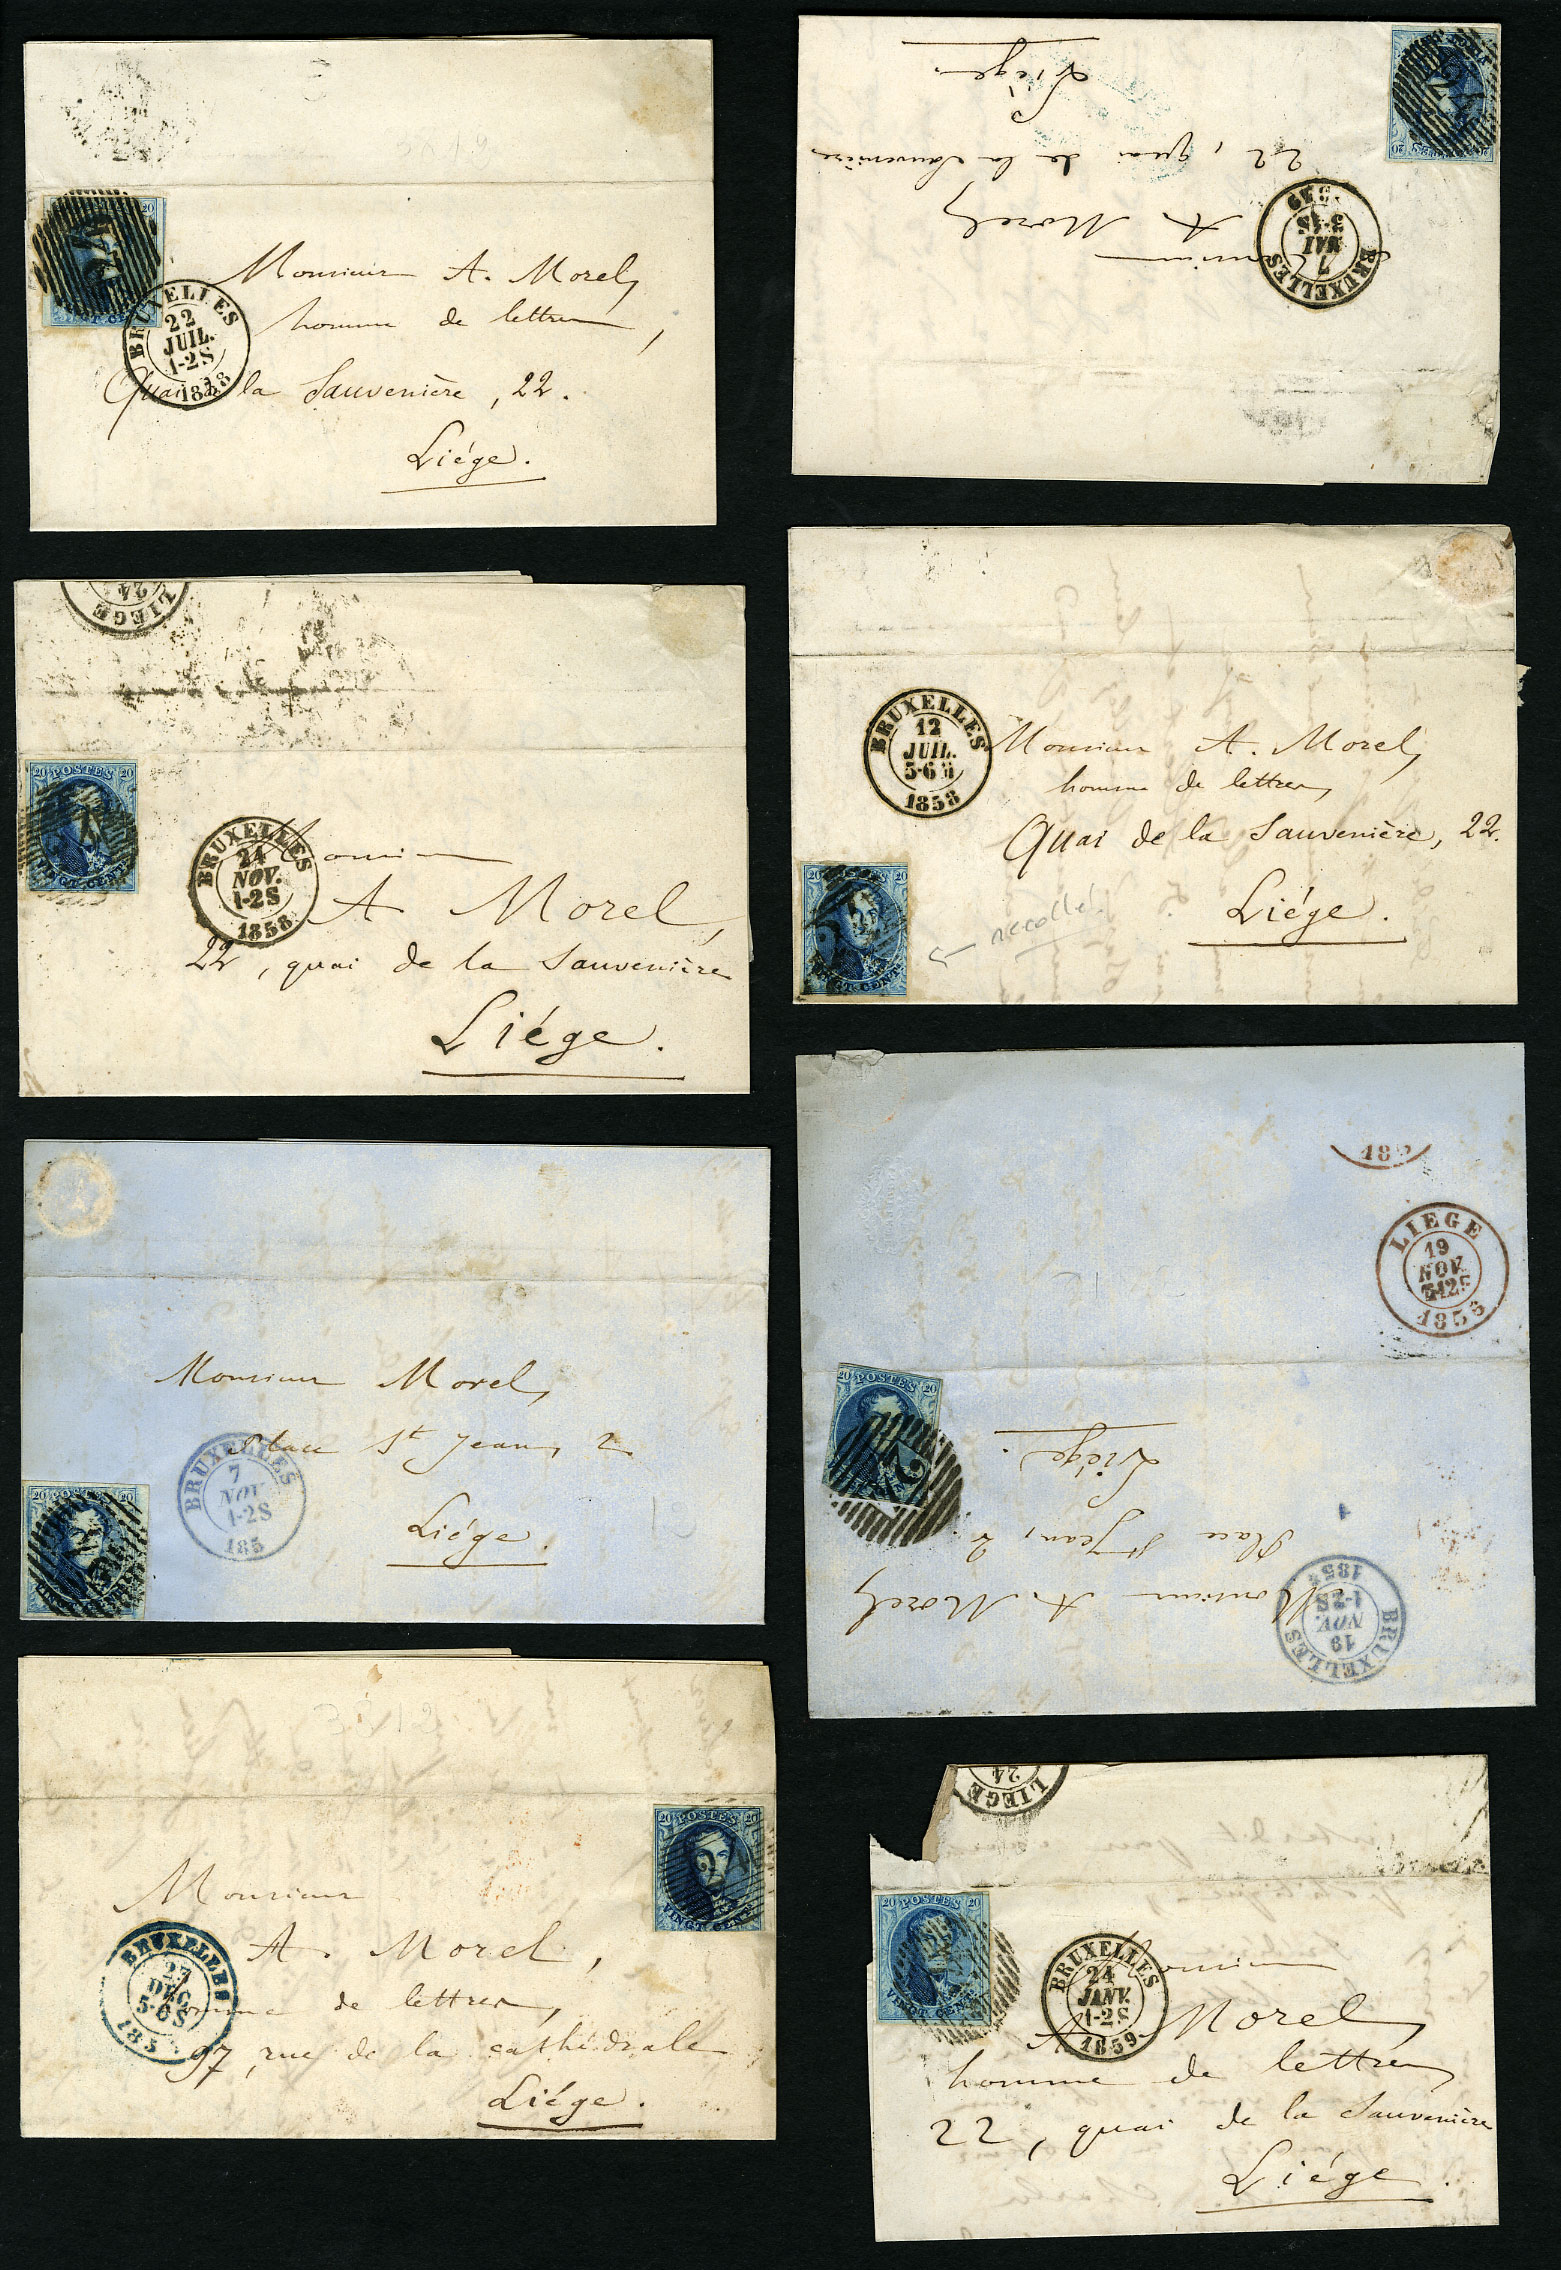 20
VINGT CENT
BRUXELLES
22
JUIL.
1-2S
1858
Monsieur A. Morel,
homme de lettres,
Quai de la Sauvenière, 22.
Liége.
20
BRUXELLES
7
MAI
Monsieur
A. Morel,
22, quai de la Sauvenière
Liége.
LIEGE
24
20 POSTES 20
VINGT CENT.
BRUXELLES
24
NOV.
1-2S
1858
Monsieur
A. Morel,
22, quai de la Sauvenière
Liége.
BRUXELLES
12
JUIL.
5-6
1858
Monsieur A. Morel,
homme de lettres,
Quai de la Sauvenière, 22.
Liége.
20 20
VINGT CENT.
recollé!
Monsieur Morel,
Place St Jean, 2
Liége.
BRUXELLES
7
NOV.
1-2S
185
20 POSTES 20
VINGT CENT.
18
LIEGE
19
NOV.
20 POSTES 20
BRUXELLES
19
NOV.
1-2S
Monsieur A. Morel,
Place St Jean, 2.
Liége.
20 POSTES 20
VINGT CENT.
BRUXELLES
27
DEC.
5-6S
185
Monsieur
A. Morel,
homme de lettres,
97, rue de la cathédrale
Liége.
LIEGE
24
20 POSTES 20
VINGT CENT.
BRUXELLES
24
JANV.
1-2S
1859
Monsieur
A. Morel,
homme de lettres,
22, quai de la Sauvenière
Liége.